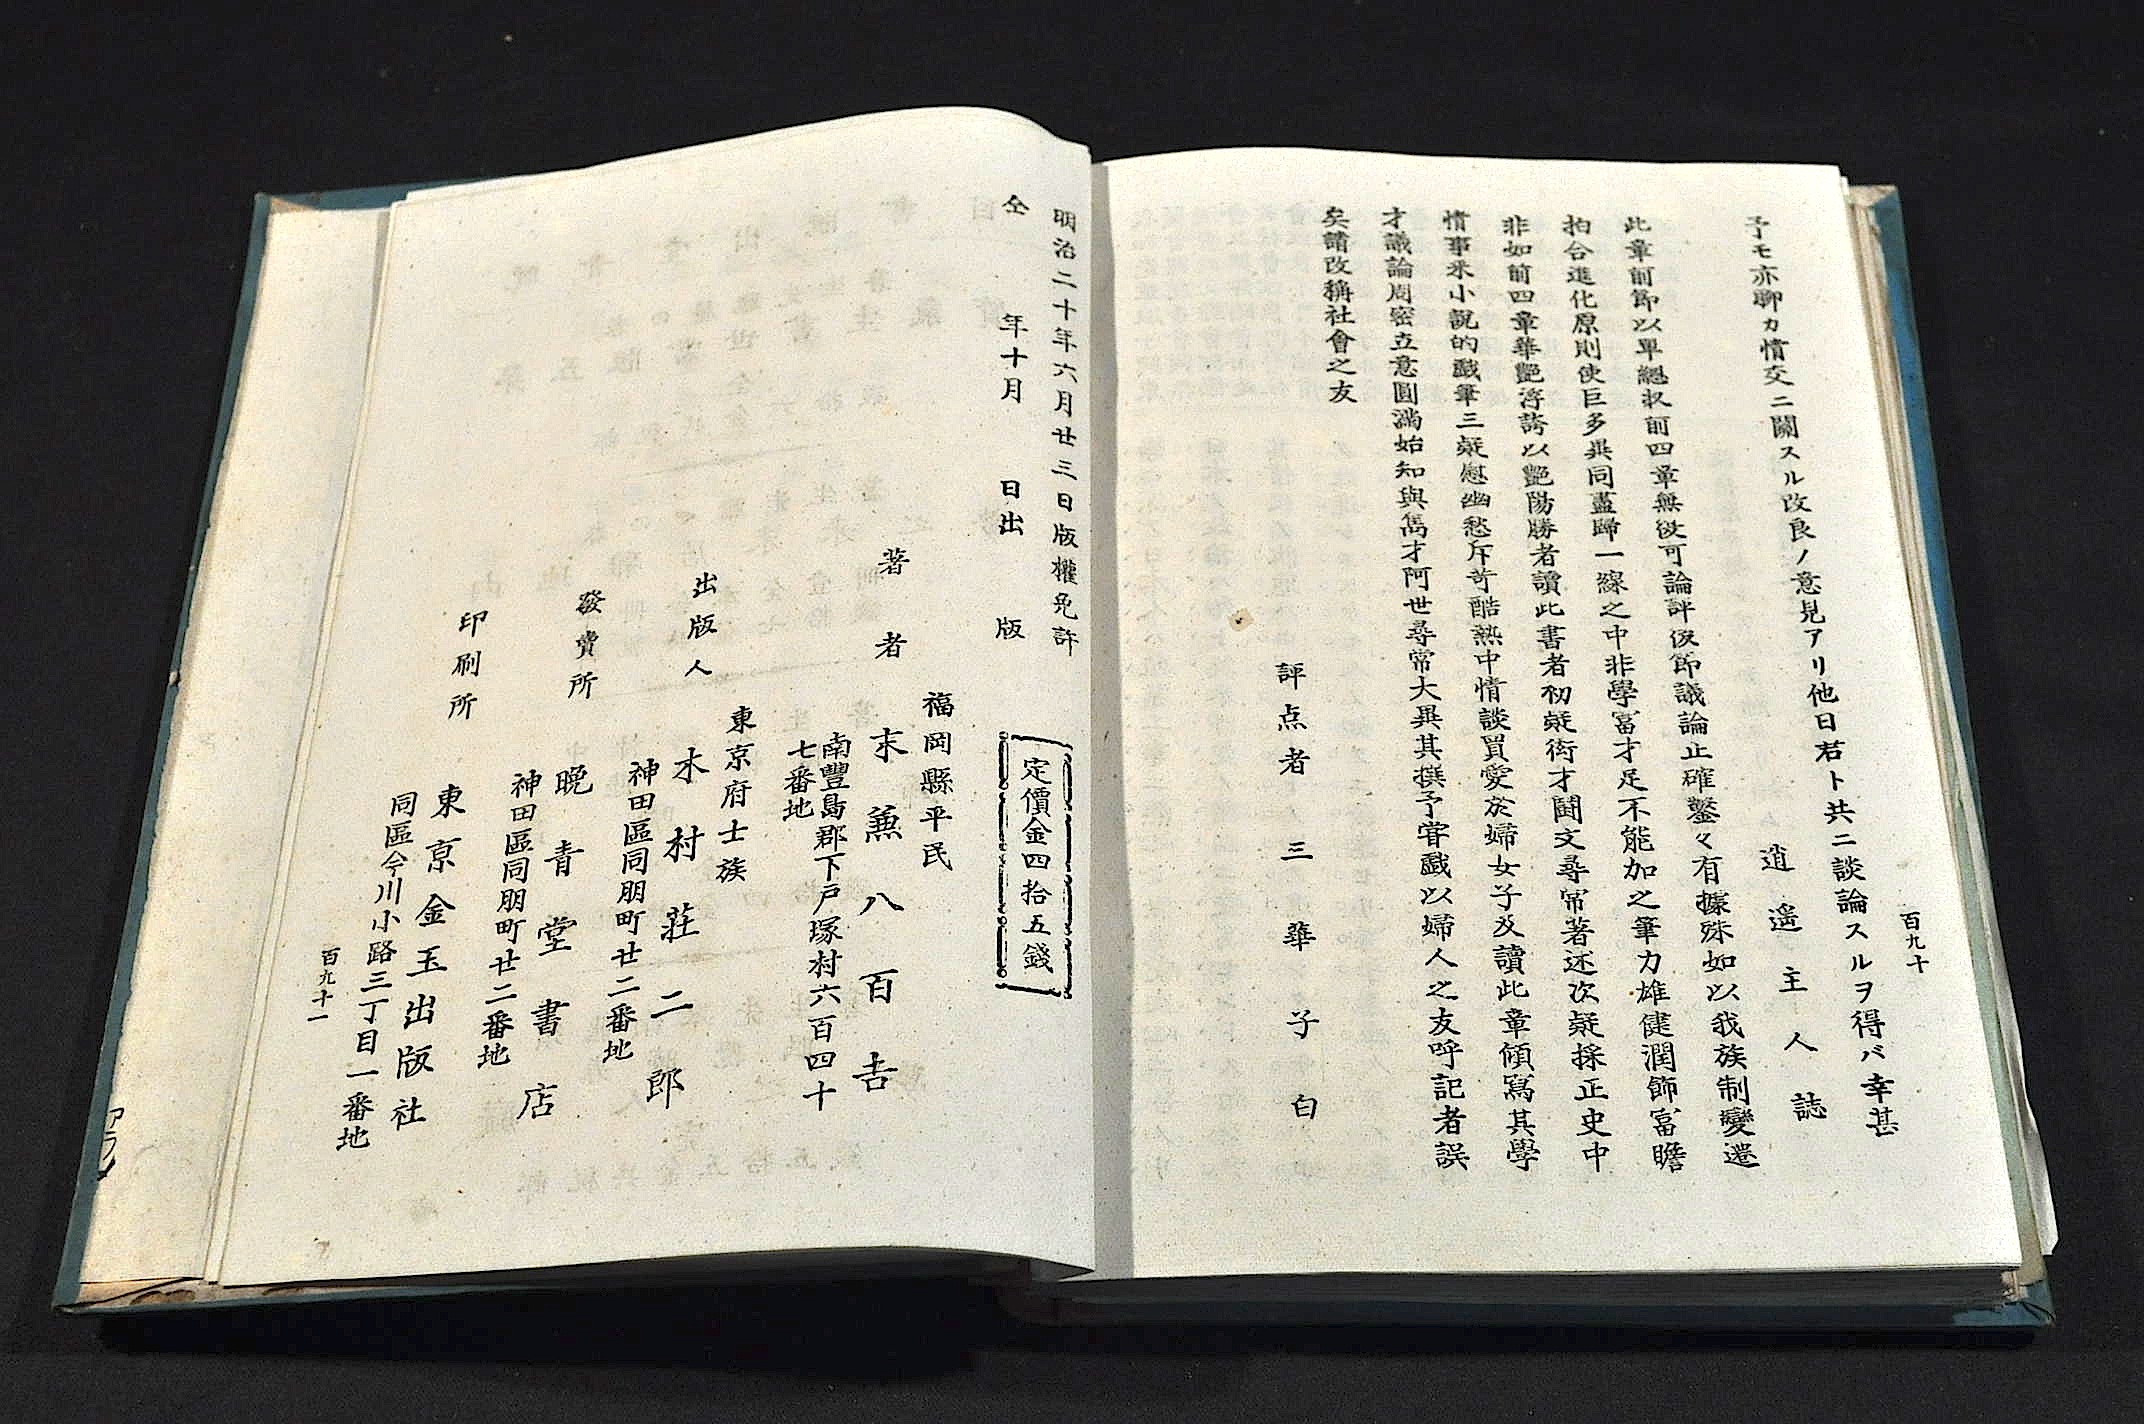 百九十
予モ亦聊カ情交ニ關スル改良ノ意見アリ他日若ト共ニ談論スルヲ得バ幸甚
逍遥主人誌
此章前節以單總收前四章無被可論評後節議論正確鑿々有據殊如以我族制變遷
拍合進化原則使巨多異同盡歸一線之中非學富才足不能加之筆力雄健潤飾富贍
非如前四章華艶浮誇以艶陽勝者讀此書者初疑衒才鬪文尋常著述次疑採正史中
情事来小說的戲筆三疑慰幽愁斥苛酷熱中情談買愛於婦女子及讀此章傾寫其學
才議論周密立意圓滿始知與雋才阿世尋常大異其撰予嘗戲以婦人之友呼記者誤
矣請改稱社會之友
評点者 三華子白
明治二十年六月廿三日版權免許
仝 年十月 日出版
定價金四拾五錢
福岡縣平民
著者 末兼八百吉
南豐島郡下戸塚村六百四十
七番地
東京府士族
出版人 木村莊二郎
神田區同朋町廿二番地
發賣所 晩青堂書店
神田區同朋町廿二番地
印刷所 東京金玉出版社
同區今川小路三丁目一番地
百九十一